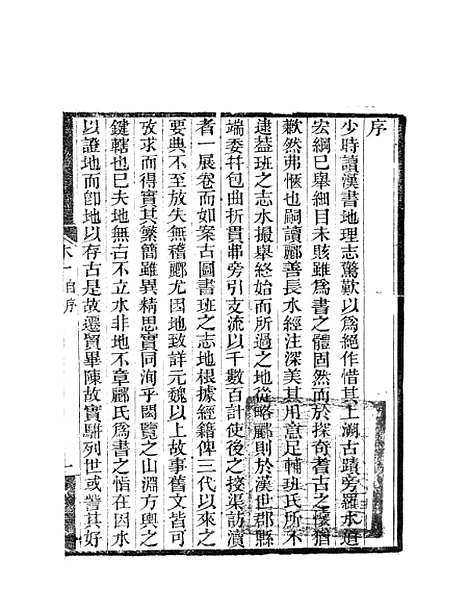 序
少時讀漢書地理志驚歎以爲絕作惜其上溯古蹟旁羅水道
宏綱已舉細目未賅雖爲書之體固然而於探奇耆古之懷猶
歉然弗愜也嗣讀酈善長水經注深美其用意足輔班氏所不
逮葢班之志水撮舉終始而所過之地從略酈則於漢世郡縣
端委幷包曲折貫串旁引支流以千數百計使後之接渠訪瀆
者一展卷而如案古圖書班之志地根據經籍俾三代以來之
要典不至放失無稽酈尤因地致詳元魏以上故事舊文皆可
攷求而得實其繁簡雖異精思實同洵乎閎覽之山淵方輿之
鍵轄也已夫地無古不立水非地不章酈氏爲書之恉在因水
以證地而卽地以存古是故遷貿畢陳故實駢列世或訾其好
水一 自序
一